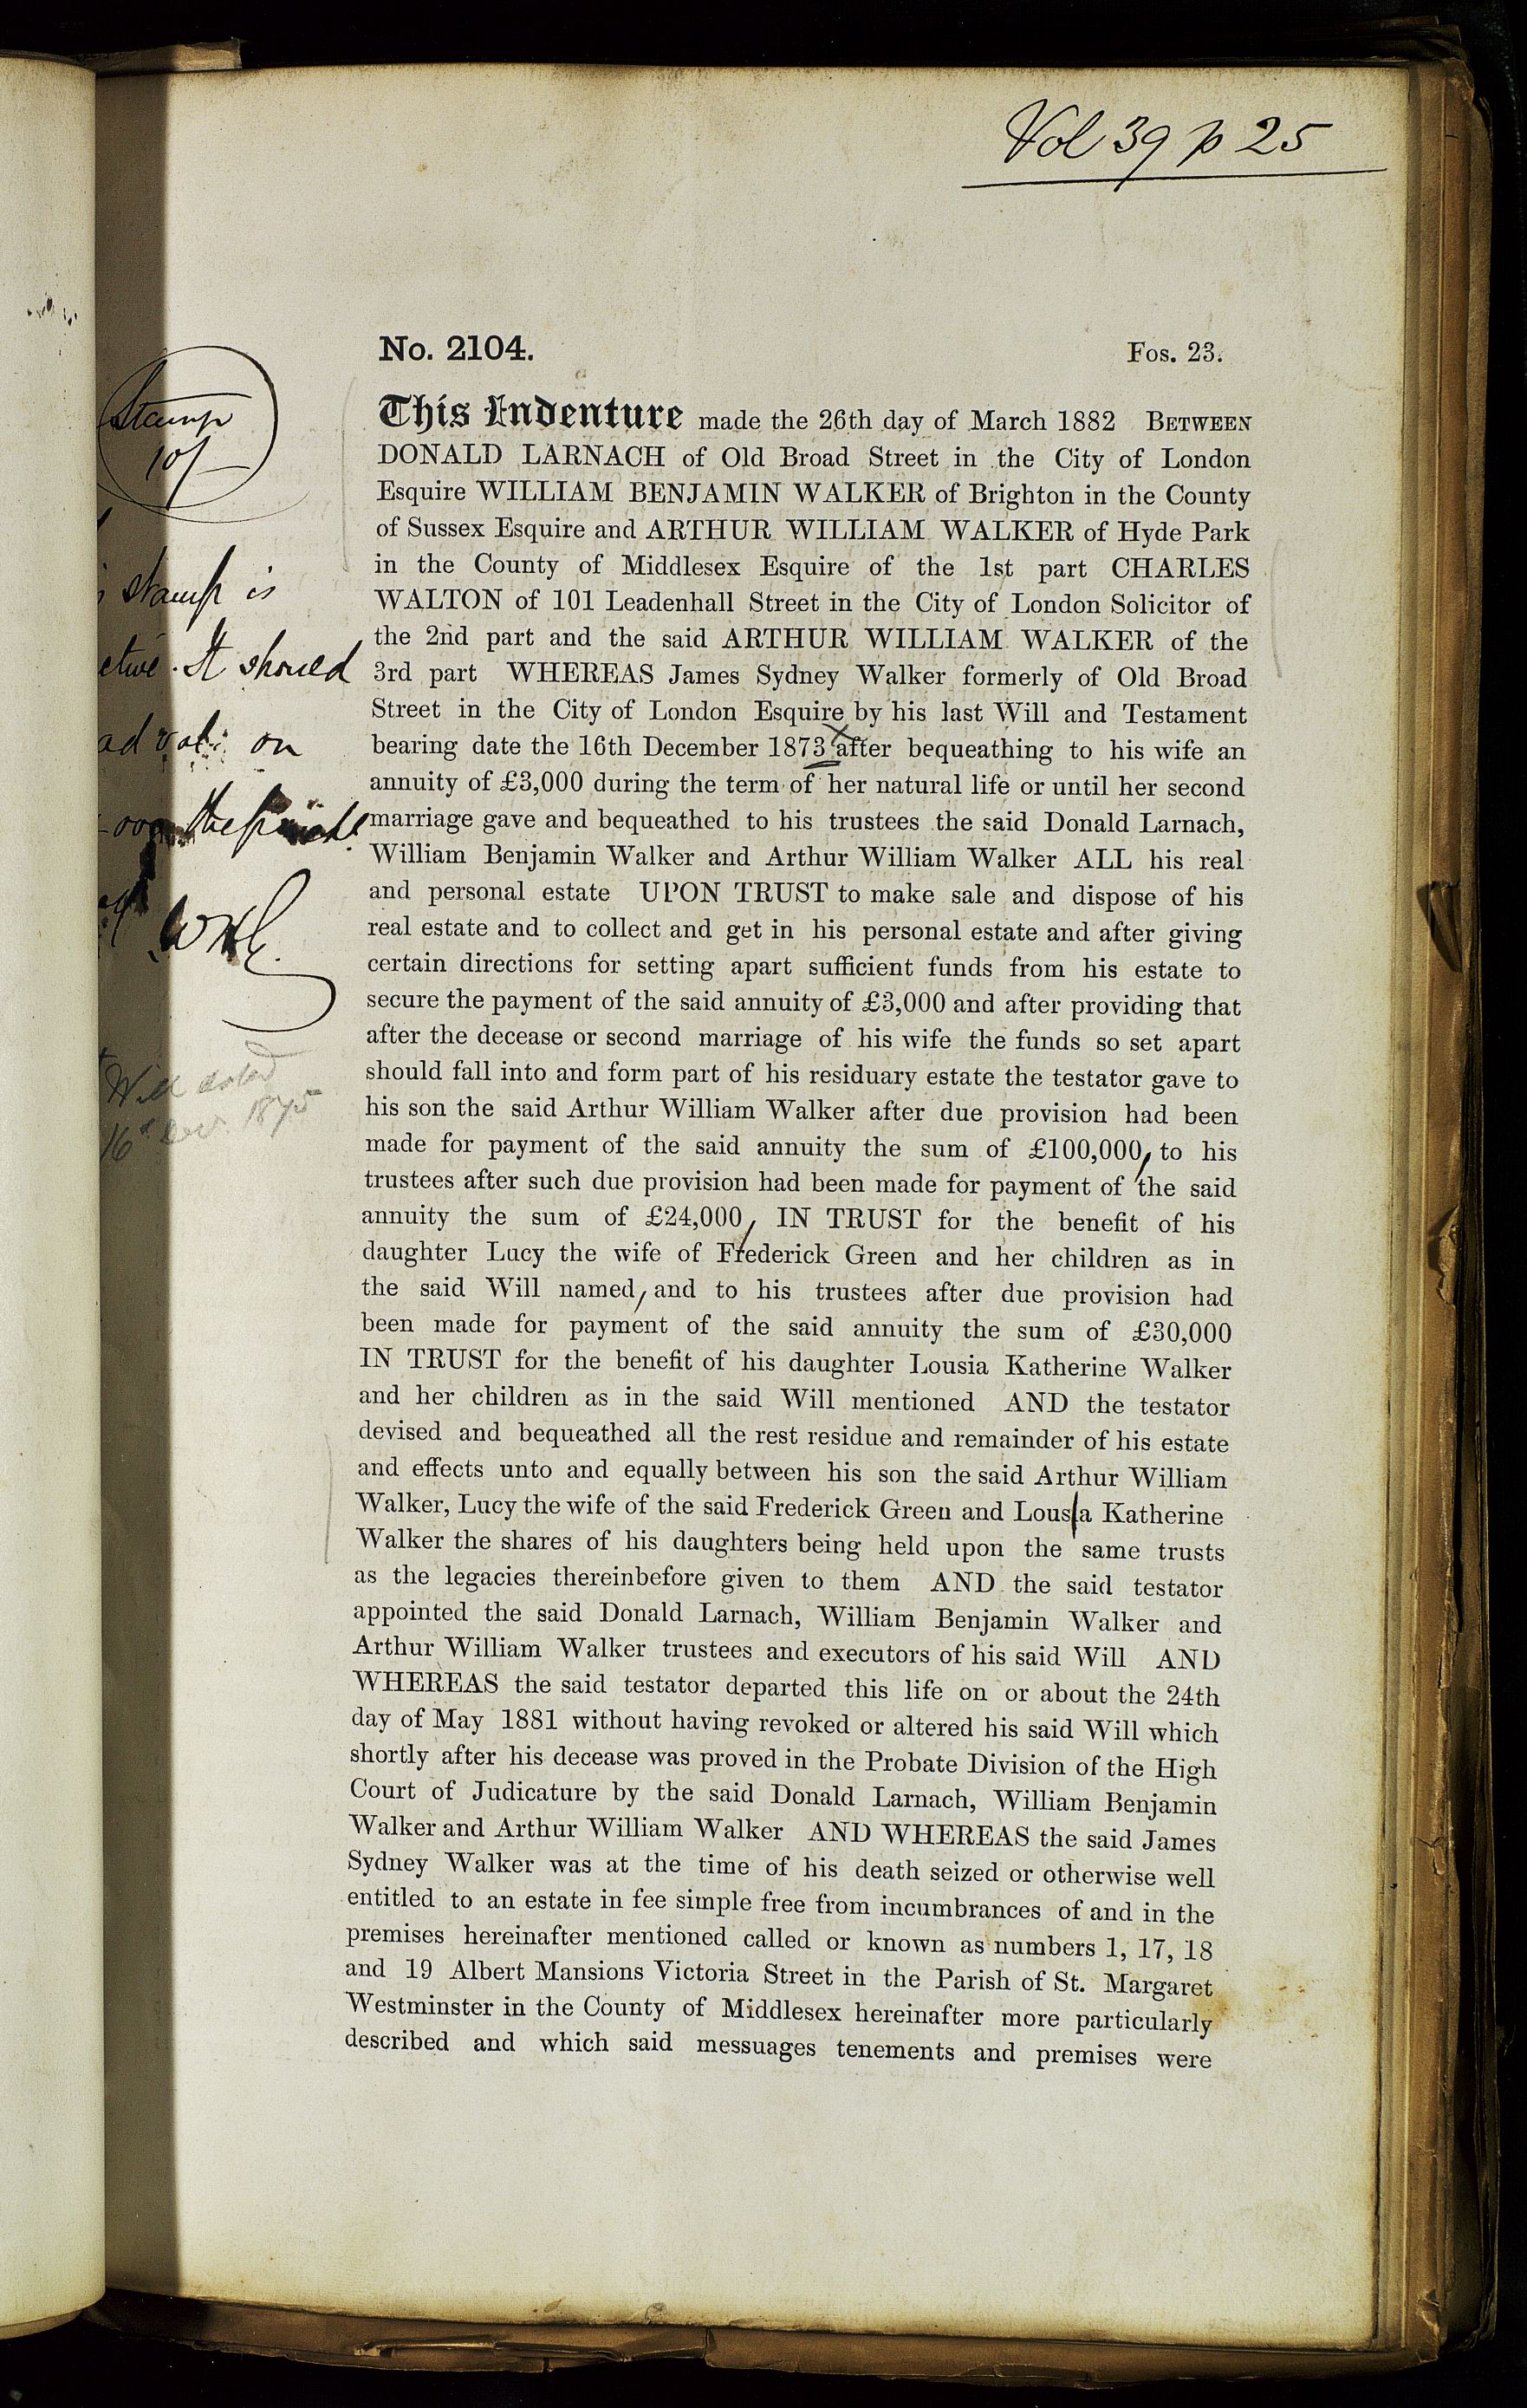 Vol 39 p 25
No. 2104.
Fos. 23.
Stamp
10/-
stamp is
It should
on
Will dated
16 Dec. 1875
This Indenture made the 26th day of March 1882 BETWEEN
DONALD LARNACH of Old Broad Street in the City of London
Esquire WILLIAM BENJAMIN WALKER of Brighton in the County
of Sussex Esquire and ARTHUR WILLIAM WALKER of Hyde Park
in the County of Middlesex Esquire of the 1st part CHARLES
WALTON of 101 Leadenhall Street in the City of London Solicitor of
the 2nd part and the said ARTHUR WILLIAM WALKER of the
3rd part WHEREAS James Sydney Walker formerly of Old Broad
Street in the City of London Esquire by his last Will and Testament
bearing date the 16th December 1873 after bequeathing to his wife an
annuity of £3,000 during the term of her natural life or until her second
marriage gave and bequeathed to his trustees the said Donald Larnach,
William Benjamin Walker and Arthur William Walker ALL his real
and personal estate UPON TRUST to make sale and dispose of his
real estate and to collect and get in his personal estate and after giving
certain directions for setting apart sufficient funds from his estate to
secure the payment of the said annuity of £3,000 and after providing that
after the decease or second marriage of his wife the funds so set apart
should fall into and form part of his residuary estate the testator gave to
his son the said Arthur William Walker after due provision had been
made for payment of the said annuity the sum of £100,000, to his
trustees after such due provision had been made for payment of the said
annuity the sum of £24,000, IN TRUST for the benefit of his
daughter Lucy the wife of Frederick Green and her children as in
the said Will named, and to his trustees after due provision had
been made for payment of the said annuity the sum of £30,000
IN TRUST for the benefit of his daughter Lousia Katherine Walker
and her children as in the said Will mentioned AND the testator
devised and bequeathed all the rest residue and remainder of his estate
and effects unto and equally between his son the said Arthur William
Walker, Lucy the wife of the said Frederick Green and Lousia Katherine
Walker the shares of his daughters being held upon the same trusts
as the legacies thereinbefore given to them AND the said testator
appointed the said Donald Larnach, William Benjamin Walker and
Arthur William Walker trustees and executors of his said Will AND
WHEREAS the said testator departed this life on or about the 24th
day of May 1881 without having revoked or altered his said Will which
shortly after his decease was proved in the Probate Division of the High
Court of Judicature by the said Donald Larnach, William Benjamin
Walker and Arthur William Walker AND WHEREAS the said James
Sydney Walker was at the time of his death seized or otherwise well
entitled to an estate in fee simple free from incumbrances of and in the
premises hereinafter mentioned called or known as numbers 1, 17, 18
and 19 Albert Mansions Victoria Street in the Parish of St. Margaret
Westminster in the County of Middlesex hereinafter more particularly
described and which said messuages tenements and premises were